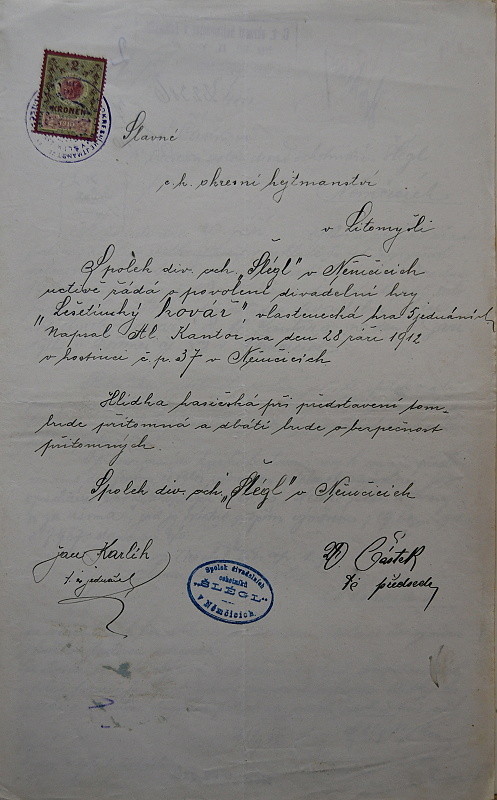 2
KRONEN
Slavné
c. k. okresní hejtmanství
v Litomyšli
Spolek div. och. „Šlégl" v Němčicích
uctivě žádá o povolení divadelní hry
„Lešetínský kovář", vlastenecká hra 5 jednáních
Napsal Al. Kantor na den 28 září 1912
v hostinci č. p. 37 v Němčicích
Hlídka hasičská při představení bude přítomná a dbáti bude o bezpečnost
přítomných.
Spolek div. och. „Šlégl" v Němčicích
Jan Karlík
t. č. jednatel
Částek
t. č. předseda
Spolek divadelních
ochotníků
„ŠLÉGL"
v Němčicích.